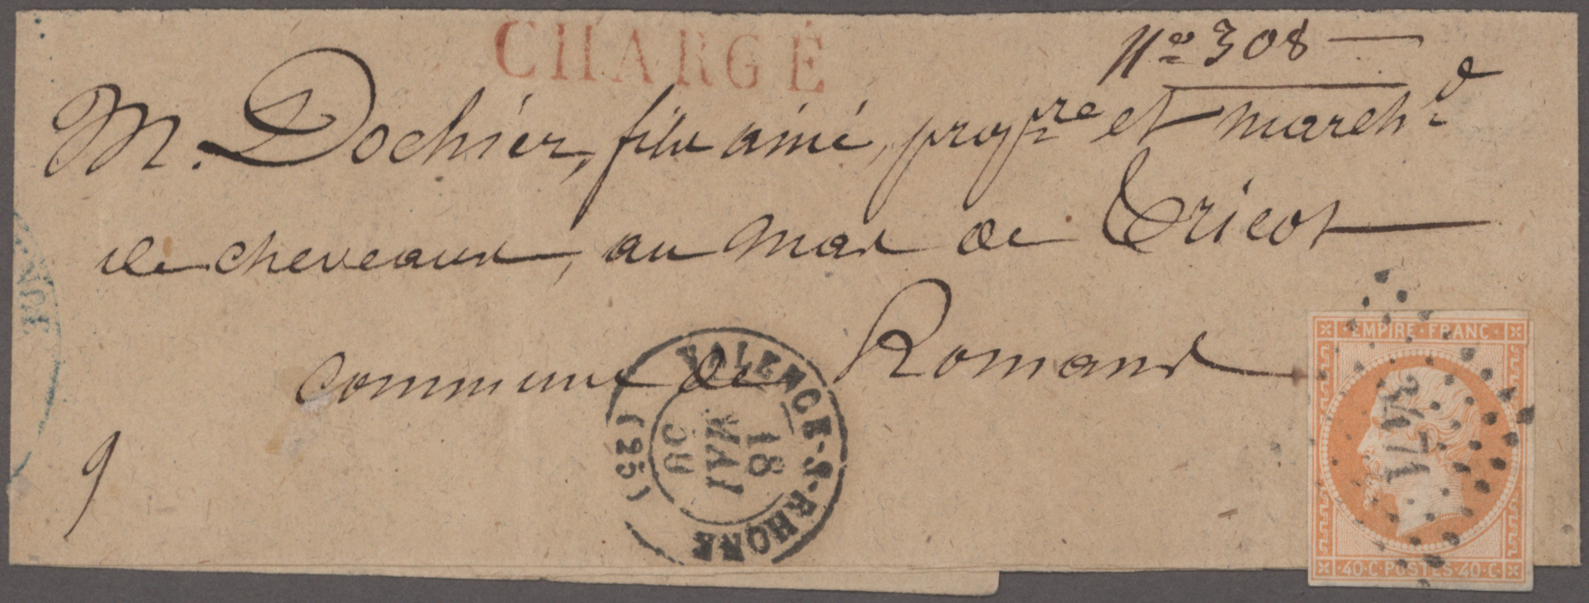 CHARGÉ
Nº 308
M. Dochier, fils ainé, propre et marchd
de cheveaux, au mas de Tricot
commune de Romans
9
VALENCE-S-RHONE
18
MAI
60
(25)
EMPIRE·FRANC·
3471
·40·C·POSTES·40·C·